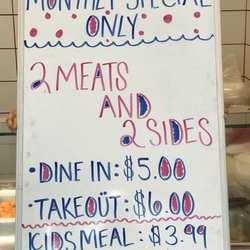 MONTHLY SPECIAL
ONLY
2 MEATS
AND
2 SIDES
• DINE IN: $5.00
• TAKEOUT: $6.00
KIDS MEAL: $3.99